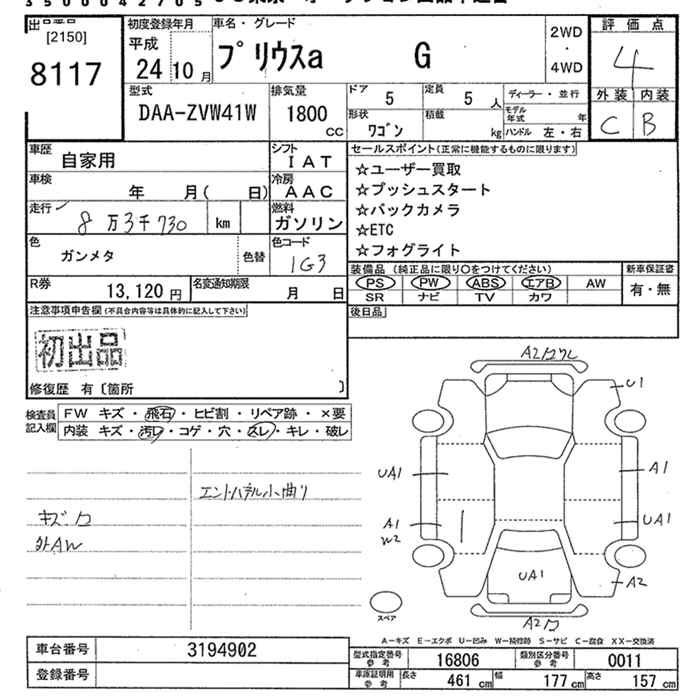 出品番号
[2150]
8117
初度登録年月
平成
24 10 月
車名・グレード
プリウスa G
2WD
・
4WD
評価点
4
外装 内装
C B
型式
DAA-ZVW41W
排気量
1800
CC
ドア
5
定員
5 人
ディーラー・並行
形状
ワゴン
積載
kg
モデル年式 年
ハンドル 左・右
車歴
自家用
シフト
IAT
車検
年 月( 日)
冷房
AAC
走行
8 万 3千 730 km
燃料
ガソリン
色
ガンメタ
色替
色コード
1G3
R券
13,120 円
名変通知期限
月 日
セールスポイント(正常に機能するものに限ります)
☆ユーザー買取
☆プッシュスタート
☆バックカメラ
☆ETC
☆フォグライト
装備品 (純正品に限り〇をつけてください)
新車保証書
PS PW ABS エアB AW
有・無
SR ナビ TV カワ
後日品
注意事項申告欄(不具合内容等は具体的に記入して下さい)
初出品
修復歴 有〔箇所 〕
検査員
記入欄
FW キズ・飛石・ヒビ割・リペア跡・×要
内装 キズ・汚レ・コゲ・穴・スレ・キレ・破レ
キズ
外AW
小曲り
U1
UA1
A1
A1
W2
UA1
UA1
A2
スペア
A-キズ E-エクボ U-凹み W-補修跡 S-サビ C-腐食 XX-交換済
車台番号 3194902
登録番号
型式指定番号
参考
16806
類別区分番号
参考
0011
車庫証明用
参考
長さ 461 cm 幅 177 cm 高さ 157 cm